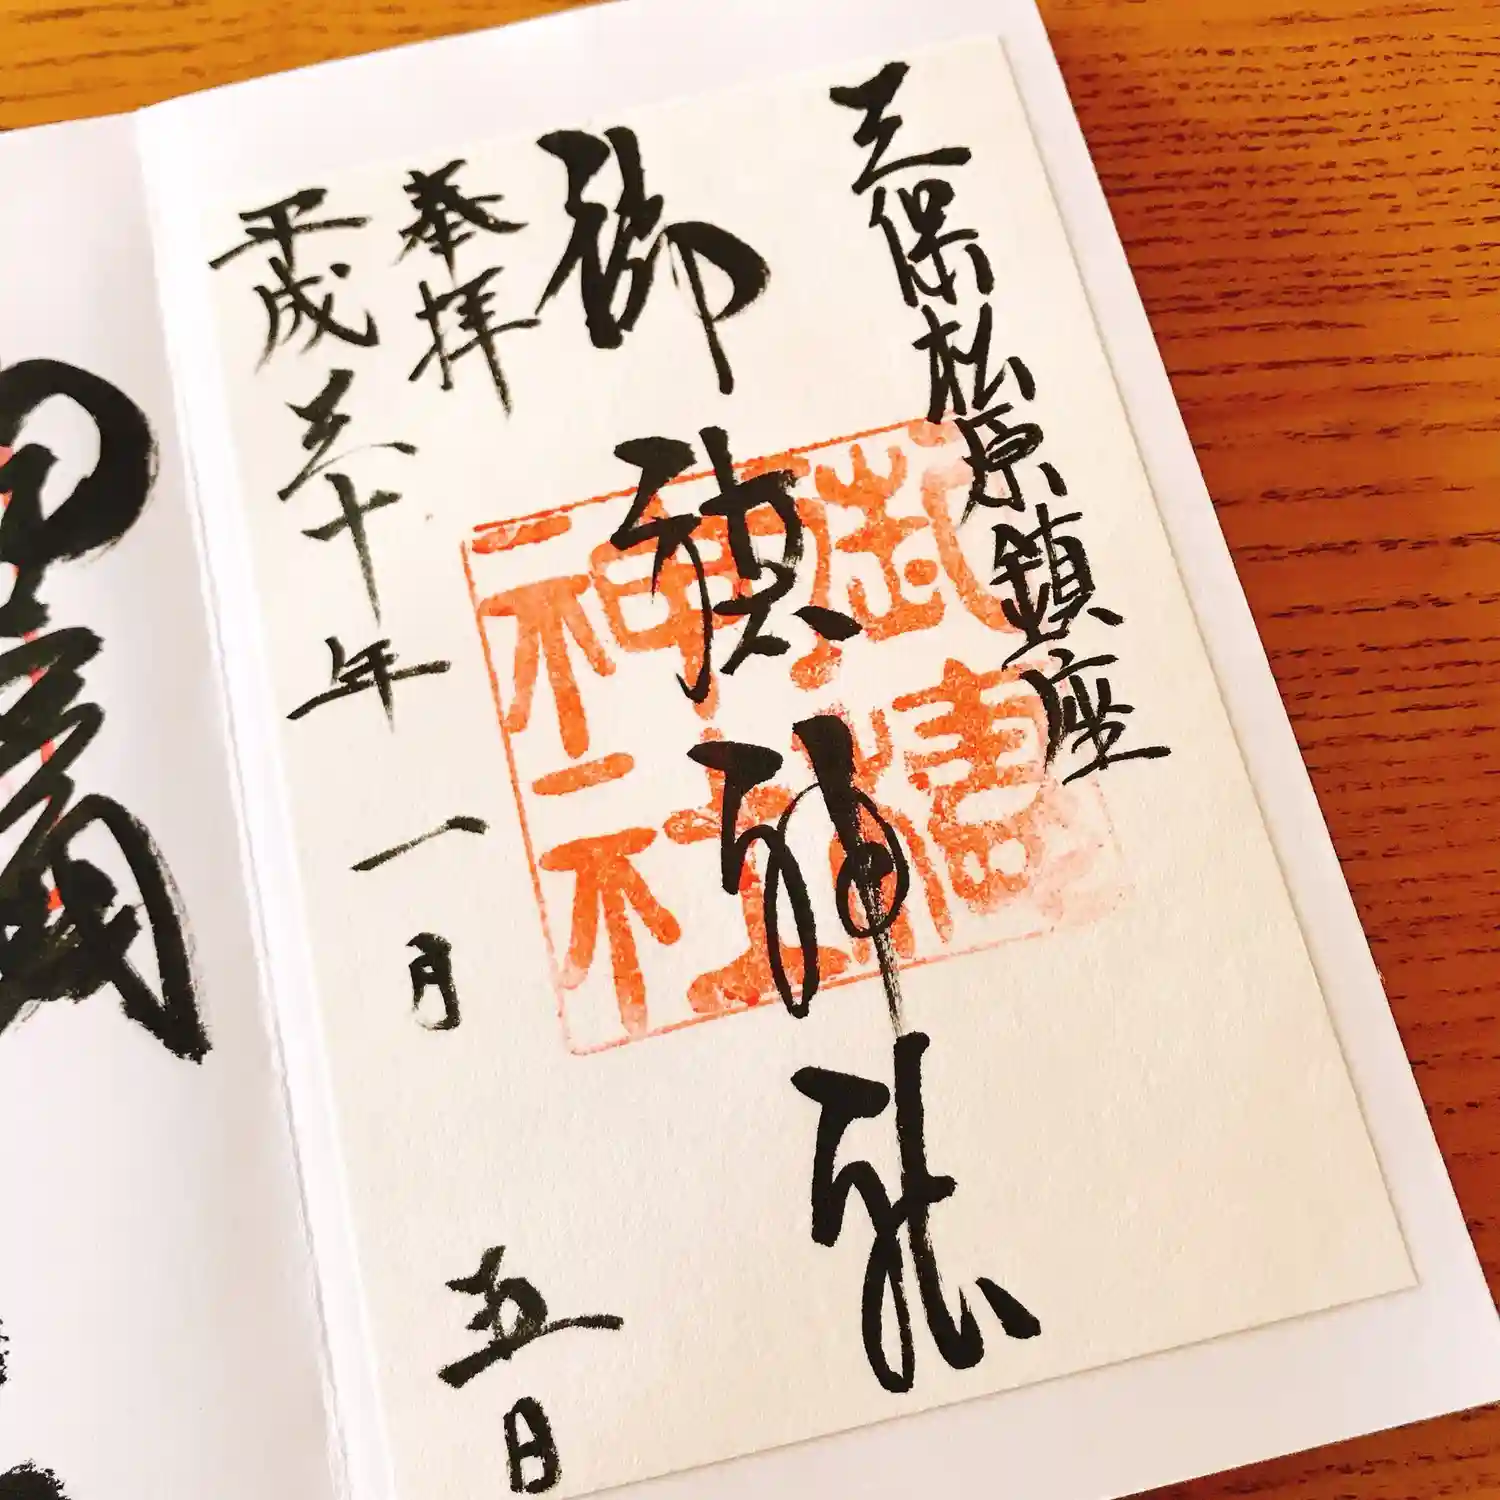 三保松原鎮座
御穂神社
御穂神社
奉拝
平成三十年一月五日